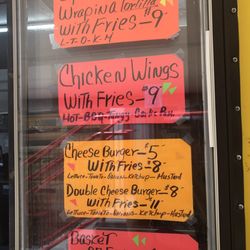 Wrap in a Tortilla
with Fries - $9
L-T-O-K-M
Chicken Wings
with Fries - $9
Hot-BBQ-Tangy Garlic Par.
Cheese Burger - $5
with Fries - $8
Lettuce-Tomato-Onion-Ketchup-Mustard
Double Cheese Burger - $8
with Fries - $11
Lettuce-Tomato-Onions-Ketchup-Mustard
Basket